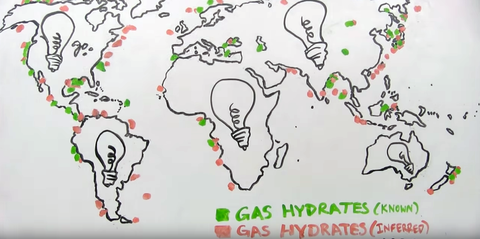 GAS HYDRATES (KNOWN)
GAS HYDRATES (INFERRED)